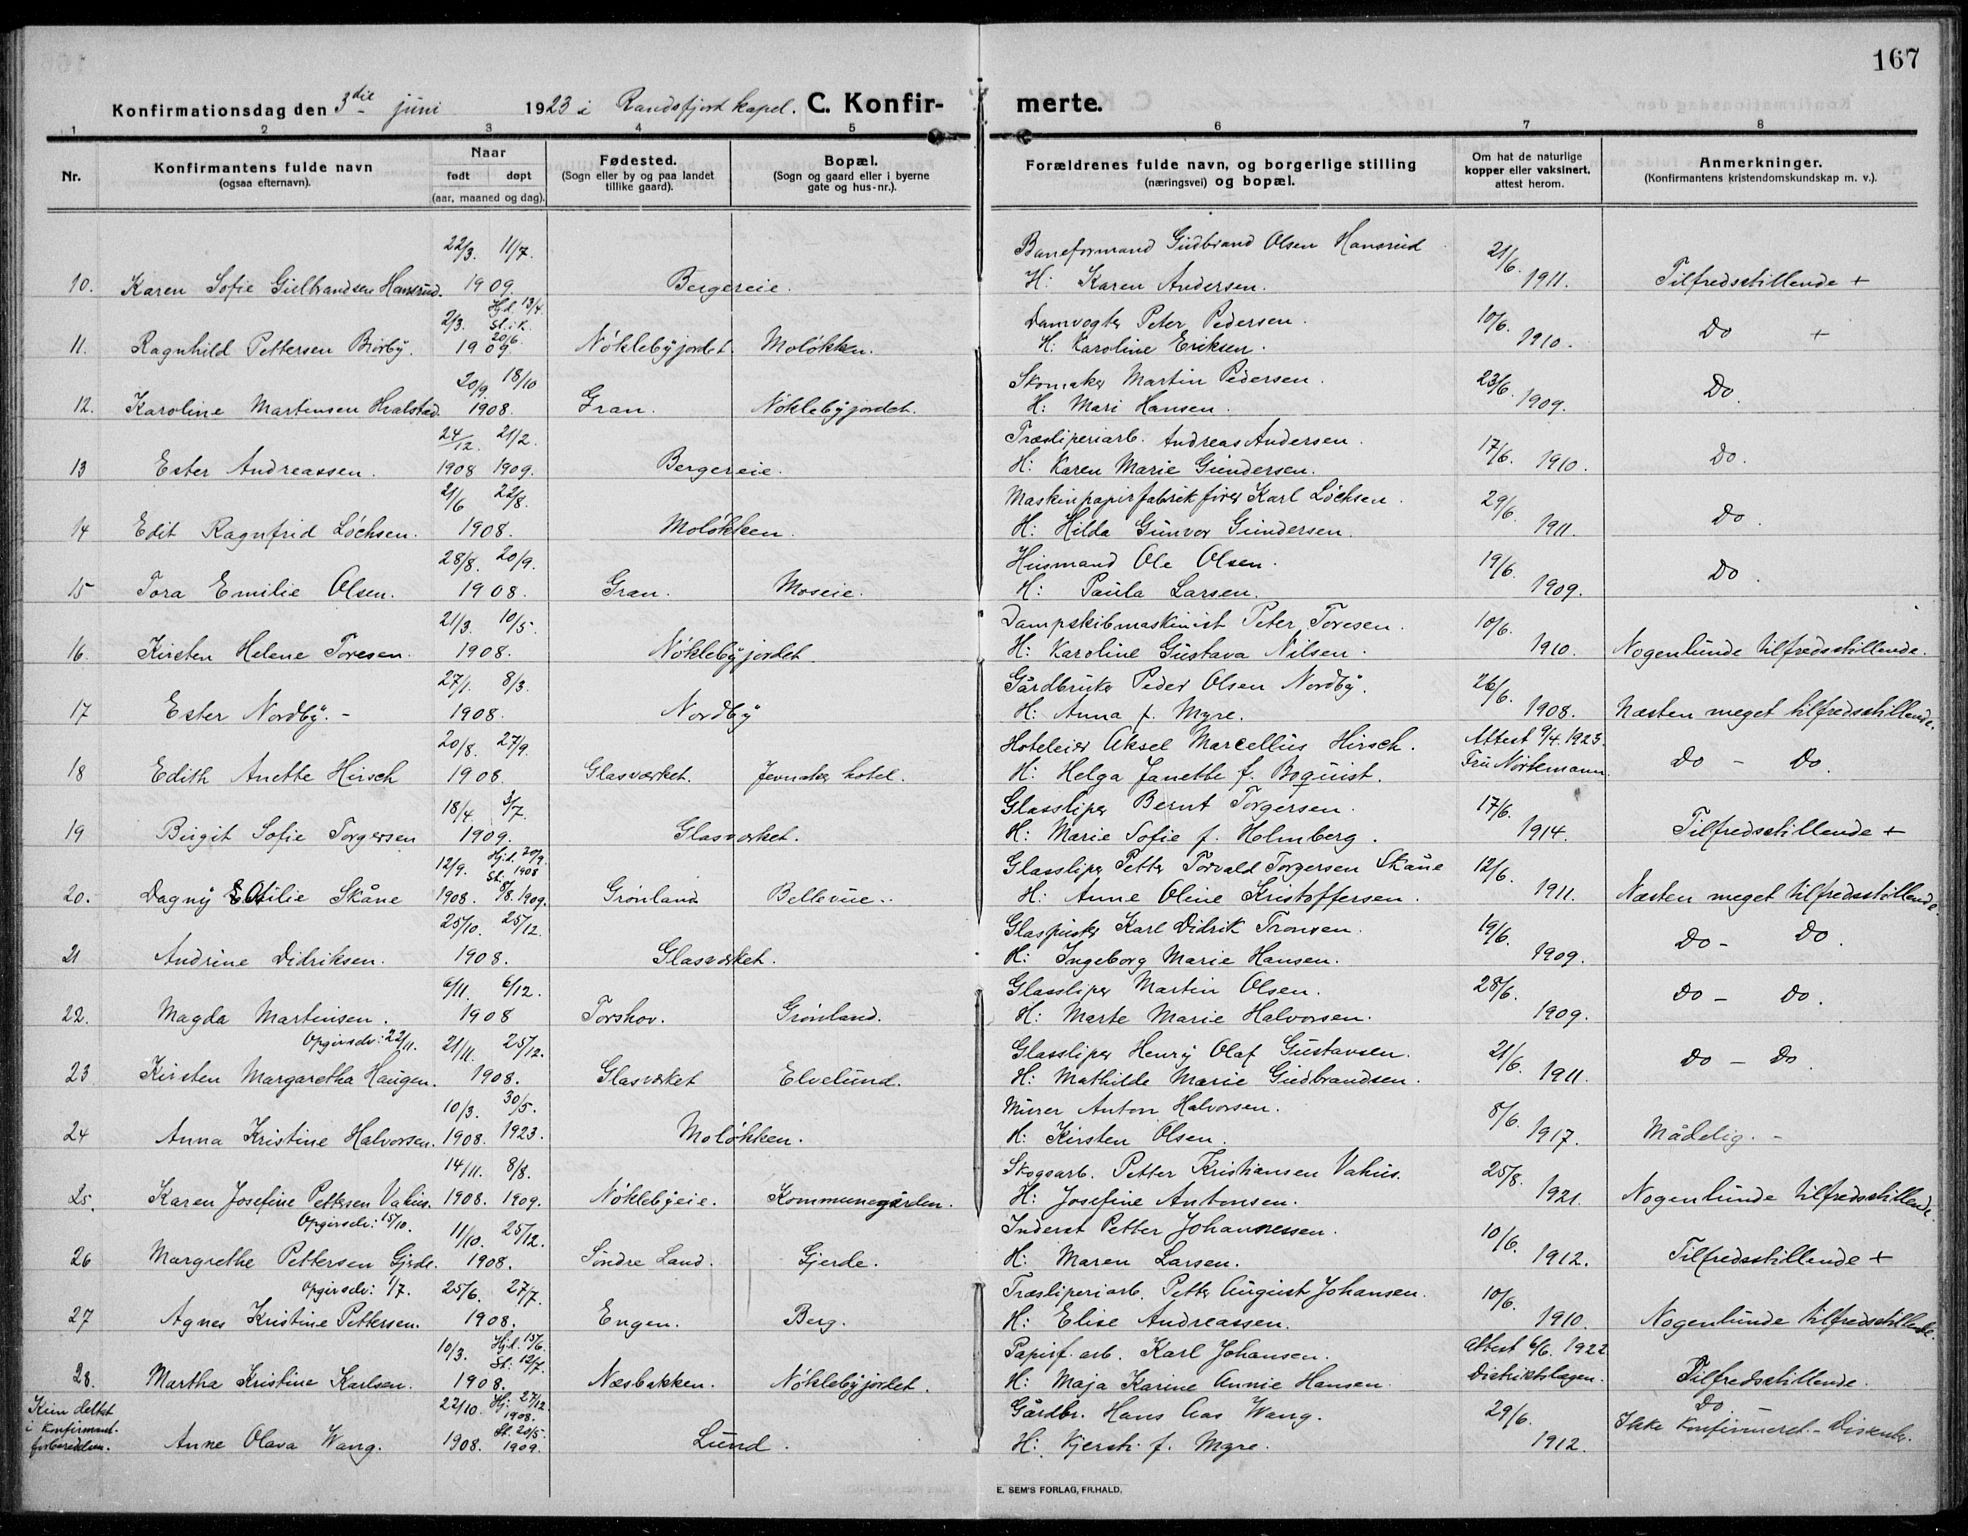 167
Konfirmationsdag den 3die juni 1923 i Randsfjord kapel. C. Konfir- merte.
1 2 3 4 5 6 7 8
Nr. Konfirmantens fulde navn (ogsaa efternavn). Naar født døpt (aar, maaned og dag). Fødested. (Sogn eller by og paa landet tillike gaard). Bopæl. (Sogn og gaard eller i byerne gate og hus-nr.). Forældrenes fulde navn, og borgerlige stilling (næringsvei) og bopæl. Om hat de naturlige kopper eller vaksinert, attest herom. Anmerkninger. (Konfirmantens kristendomskundskap m. v.).
22/3. 11/7. Baneformand Gudbrand Olsen Hansrud 21/6.
10. Karen Sofie Gulbrandsen Hansrud. 1909. Bergereie. H: Karen Andersen. 1911. Tilfredsstillende +
2/3. Hjd. 13/4. St. i k. 20/6. Damvogter Peter Pedersen. 10/6.
11. Ragnhild Pettersen Biørby. 1909 Nøklebyjordet. Moløkken. H: Karoline Eriksen. 1910. Do +
20/9. 18/10 Skomaker Martin Pedersen. 23/6.
12. Karoline Martinsen Hvalstad 1908. Gran. Nøklebyjordet. H: Mari Hansen. 1909. Do.
24/12. 21/2. Træsliperiarb. Andreas Andersen. 17/6.
13 Ester Andreassen. 1908 1909. Bergereie. H: Karen Marie Gundersen. 1910. Do.
21/6 22/8. Maskinpapirfabrikfører Karl Løchsen. 29/6.
14 Edit Ragnfrid Løchsen. 1908. Moløkken. H: Hilda Gunvor Gundersen. 1911. Do.
28/8. 20/9. Husmand Ole Olsen. 19/6.
15 Tora Emilie Olsen. 1908. Gran. Moseie. H: Paula Larsen. 1909. Do.
21/3. 10/5. Dampskibmaskinist Peter Toresen. 10/6.
16. Kirsten Helene Toresen. 1908. Nøklebyjordet H: Karoline Gustava Nilsen. 1910. Nogenlunde tilfredsstillende.
27/1. 8/3. Gårdbruker Peder Olsen Nordby. 26/6.
17 Ester Nordby. - 1908. Nordby H: Anna f. Myre. 1908. Næsten meget tilfredsstillende.
20/8. 27/9. Hoteleier Aksel Marcellius Hirsch. Attest 9/4. 1923.
18 Edith Anette Hirsch 1908. Glasværket. Jevnaker hotel. H: Helga Janette f. Boquist. Fru Nortemann. Do - Do.
18/4. 3/7. Glassliper Bernt Torgersen. 17/6.
19 Birgit Sofie Torgersen 1909. Glasværket. H: Marie Sofie f. Holmberg. 1914. Tilfredsstillende +
12/9. Hjd. 20/9. 1908 St. Glassliper Petter Torvald Torgersen Skåne 12/6.
20. Dagny Otilie Skåne 1908. 8/8. 1909. Grønland Bellevue. H: Anne Oline Kristoffersen. 1911. Næsten meget tilfredsstillende.
25/10. 25/12. Glaspuster Karl Didrik Tronsen. 19/6.
21 Andrine Didriksen. 1908. Glasværket. H: Ingeborg Marie Hansen. 1909. Do - Do.
6/11. 6/12. Glassliper Martin Olsen. 28/6.
22. Magda Martinsen. 1908 Torshov. Grønland. H: Marte Marie Halvorsen. 1909. Do - Do.
Opgir selv: 22/11. 21/11. 25/12. Glassliper Henry Olaf Gustavsen. 21/6.
23 Kirsten Margaretha Haugen. 1908. Glasværket Elvelund. H: Mathilde Marie Gudbrandsen. 1911. Do - Do.
10/3. 30/5. Murer Anton Halvorsen. 8/6.
24 Anna Kristine Halvorsen. 1908. 1923. Moløkken. H: Kirsten Olsen. 1917. Mådelig. -
14/11. 8/8. Skogsarb. Petter Kristiansen Vahus. 25/8.
25. Karen Josefine Pettersen Vahus. 1908. 1909. Nøklebyeie. Kommunegården. H: Josefine Antonsen. 1921. Nogenlunde tilfredsstillende.
Opgir selv: 15/10. 11/10. 25/12. Inderst Petter Johannessen. 10/6.
26 Margrethe Pettersen Gjerde. 1908. Søndre Land. Gjerde. H: Maren Larsen. 1912. Tilfredsstillende +
Opgir selv: 1/7. 25/6. 27/7. Træsliperiarb. Petter August Johansen. 10/6.
27 Agnes Kristine Pettersen. 1908. Engen. Berg. H: Elise Andreassen. 1910. Nogenlunde tilfredsstillende.
10/3. Hjd. 15/6. St: 12/7. Papirf. arb. Karl Johansen. Attest 6/6. 1922
28. Martha Kristine Karlsen. 1908. Næsbakken. Nøklebyjordet. H: Maja Karine Annie Hansen. Distriktslægen. Tilfredsstillende.
Kun deltat i konfirmant-forberedelsen. 22/10. Hj: 27/12. 1908. Gårdbr. Hans Aas Wang. 29/6. Do
Anne Olava Wang. 1908. St. 20/5. 1909. Lund. H: Kjersti f. Myre. 1912. Ikke konfirmeret. - Dissenter.
E. SEM'S FORLAG, FR.HALD.